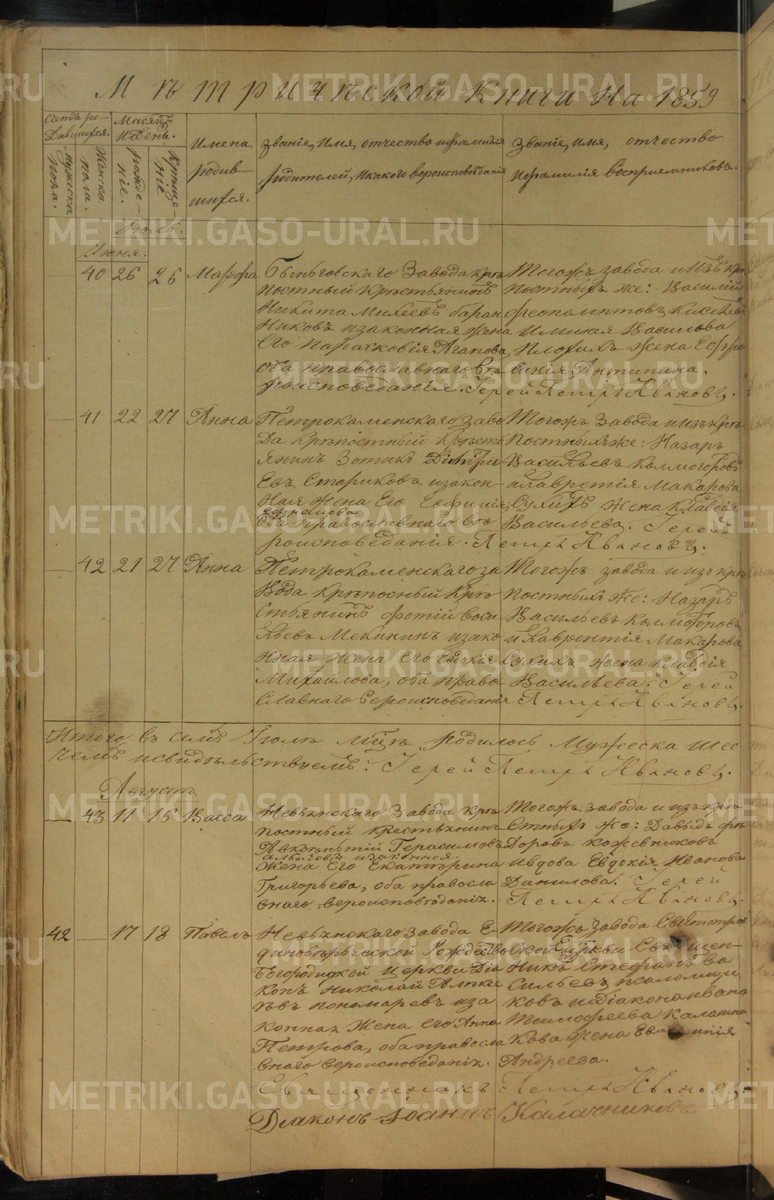 Метрической книги на 1859
Счетъ родившихся. Мужеска пола. Женска пола.
Мѣсяцъ и День. рожденіе. крещеніе
Имена родившихся.
Званіе, имя, отчество и фамилія родителей, и какого вероисповѣданія
Званіе, имя, отчество и фамилія восприемниковъ.
Іюль.
Іюня.
— 40 26 26 Марфа
Быньговскаго Завода крѣ
постный крѣстьянинъ
Никита Михеевъ баран
никовъ и законная жена
Его Парасковія Агапова
оба православнаго вѣ
роисповеданіе.
Тогожъ завода и изъ крѣ
постныхъ же: Василій
Жена Ефро
синія Антипина.
Іерей Петръ Ивановъ.
— 41 22 27 Анна
Петрокаменскаго заво
да крѣпостный крѣсть
янинъ Зотикъ Дмитри
евъ Стариковъ и закон
ная жена Его Евфимія
оба православнаго вѣ
роисповеданія.
Тогожъ завода и изъ крѣ
постныхъ же: Назаръ
Васильевъ Колмогоровъ
и лаврентія Макарова
Сухихъ жена клавдія
Васильева. Іерей
Петръ Ивановъ.
— 42 21 27 Анна
Петрокаменскаго за
вода крѣпосный крѣ
стьянинъ фотій васи
льевъ Мекинин и зако
нная жена Его Евдокія
Михайлова, оба право
славнаго вероисповеданія
Тогожъ завода и изъ крѣ
постныхъ же: Назаръ
Васильевъ Колмогоровъ
и Лаврентія Макарова
Сухихъ жена клавдія
Васильева. Іерей
Петръ Ивановъ.
Итого въ семъ Іюлѣ мѣцѣ родилось мужеска
чемъ и свидѣтельствуемъ: Іерей Петръ Ивановъ.
Августъ
— 43 11 16 Васса
Невьянскаго завода крѣ
постный крестьянинъ
Герасимовъ
и законная
жена Его Екатерина
Григорьева, оба правосла
внаго вероисповѣданія.
Тогожъ завода и изъ крѣ
стныхъ же: Давыдъ фе
доровъ кожевниковъ
и вдова Евдокія Иванова
Данилова. Іерей
Петръ Ивановъ.
42 — 17 18 Павелъ
Невьянскаго завода Е
диноверческой Рождество
Богородицкой церкви Діа
конъ Николай Алексе
евъ пономаревъ и за
конная жена его Анна
Петрова, оба правосла
внаго вероисповеданія.
Тогожъ завода
церкви Священ
никъ Стефанъ ва
сильевъ псаломщи
ковъ и діакона ивана
Тимофеева Калашни
кова жена
Андреева.
Священникъ Петръ Ивановъ
Діаконъ Іоаннъ Калачниковъ
METRIKI.GASO-URAL.RU